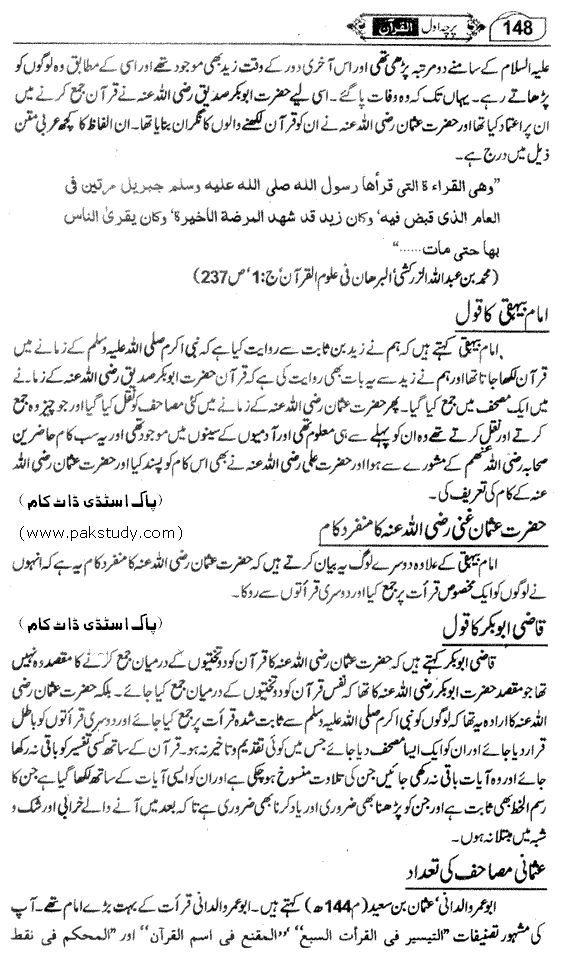 148 پرچہ اول القرآن
علیہ السلام کے سامنے دو مرتبہ پڑھی تھی اور اس آخری دور کے وقت زید بھی موجود تھے اور اسی کے مطابق وہ لوگوں کو
پڑھاتے رہے۔ یہاں تک کہ وہ وفات پا گئے۔ اسی لیے حضرت ابوبکر صدیق رضی اللہ عنہ نے قرآن جمع کرنے میں
ان پر اعتماد کیا تھا اور حضرت عثمان رضی اللہ عنہ نے ان کو قرآن لکھنے والوں کا نگران بنایا تھا۔ ان الفاظ کا کچھ عربی متن
ذیل میں درج ہے۔
”وهی القراء ة التی قرأها رسول الله صلی الله علیه وسلم جبریل مرتین فی
العام الذی قبض فیه‘ وکان زید قد شهد المرضة الأخیرة‘ وکان یقریٔ الناس
بها حتی مات......“
(محمد بن عبداللہ الزرکشی‘ البرھان فی علوم القرآن‘ ج:1‘ ص237)
امام بیہقی کا قول
امام بیہقی کہتے ہیں کہ ہم نے زید بن ثابت سے روایت کیا ہے کہ نبی اکرم صلی اللہ علیہ وسلم کے زمانے میں
قرآن لکھا جاتا تھا اور ہم نے زید سے یہ بات بھی روایت کی ہے کہ قرآن حضرت ابوبکر صدیق رضی اللہ عنہ کے زمانے
میں ایک مصحف میں جمع کیا گیا۔ پھر حضرت عثمان رضی اللہ عنہ کے زمانے میں کئی مصاحف کو نقل کیا گیا اور جو چیز وہ جمع
کرتے اور نقل کرتے تھے وہ ان کو پہلے سے ہی معلوم تھی اور آدمیوں کے سینوں میں موجود تھی اور یہ سب کام حاضرین
صحابہ رضی اللہ عنھم کے مشورے سے ہوا اور حضرت علی رضی اللہ عنہ نے بھی اس کام کو پسند کیا اور حضرت عثمان رضی اللہ
عنہ کے کام کی تعریف کی۔
(پاک اسٹڈی ڈاٹ کام)
حضرت عثمان غنی رضی اللہ عنہ کا منفرد کام
(www.pakstudy.com)
امام بیہقی کے علاوہ دوسرے لوگ یہ بیان کرتے ہیں کہ حضرت عثمان رضی اللہ عنہ کا منفرد کام یہ ہے کہ انہوں
نے لوگوں کو ایک مخصوص قرأت پر جمع کیا اور دوسری قرأتوں سے روکا۔
قاضی ابوبکر کا قول
(پاک اسٹڈی ڈاٹ کام)
قاضی ابوبکر کہتے ہیں کہ حضرت عثمان رضی اللہ عنہ کا قرآن کو دو تختیوں کے درمیان جمع کرنے کا مقصد وہ نہیں
تھا جو مقصد حضرت ابوبکر رضی اللہ عنہ کا تھا کہ نفس قرآن کو دو تختیوں کے درمیان جمع کیا جائے۔ بلکہ حضرت عثمان رضی
اللہ عنہ کا ارادہ یہ تھا کہ لوگوں کو نبی اکرم صلی اللہ علیہ وسلم سے ثابت شدہ قرأت پر جمع کیا جائے اور دوسری قرأتوں کو باطل
قرار دیا جائے اور ان کو ایک ایسا مصحف دیا جائے جس میں کوئی تقدیم و تاخیر نہ ہو۔ قرآن کے ساتھ کسی تفسیر کو باقی نہ رکھا
جائے اور وہ آیات باقی نہ رکھی جائیں جن کی تلاوت منسوخ ہو چکی ہے اور ان کو ایسی آیات کے ساتھ لکھا گیا ہے جن کا
رسم الخط بھی ثابت ہے اور جن کو پڑھنا بھی ضروری اور یاد کرنا بھی ضروری ہے تاکہ بعد میں آنے والے خرابی اور شک و
شبہ میں مبتلا نہ ہوں۔
عثمانی مصاحف کی تعداد
ابوعمرو الدانی‘ عثمان بن سعید (م144ھ) کہتے ہیں۔ ابوعمرو الدانی قرأت کے بہت بڑے امام تھے۔ آپ
کی مشہور تصنیفات ”التیسیر فی القرأت السبع“ ”المقنع فی اسم القرآن“ اور ”المحکم فی نقط